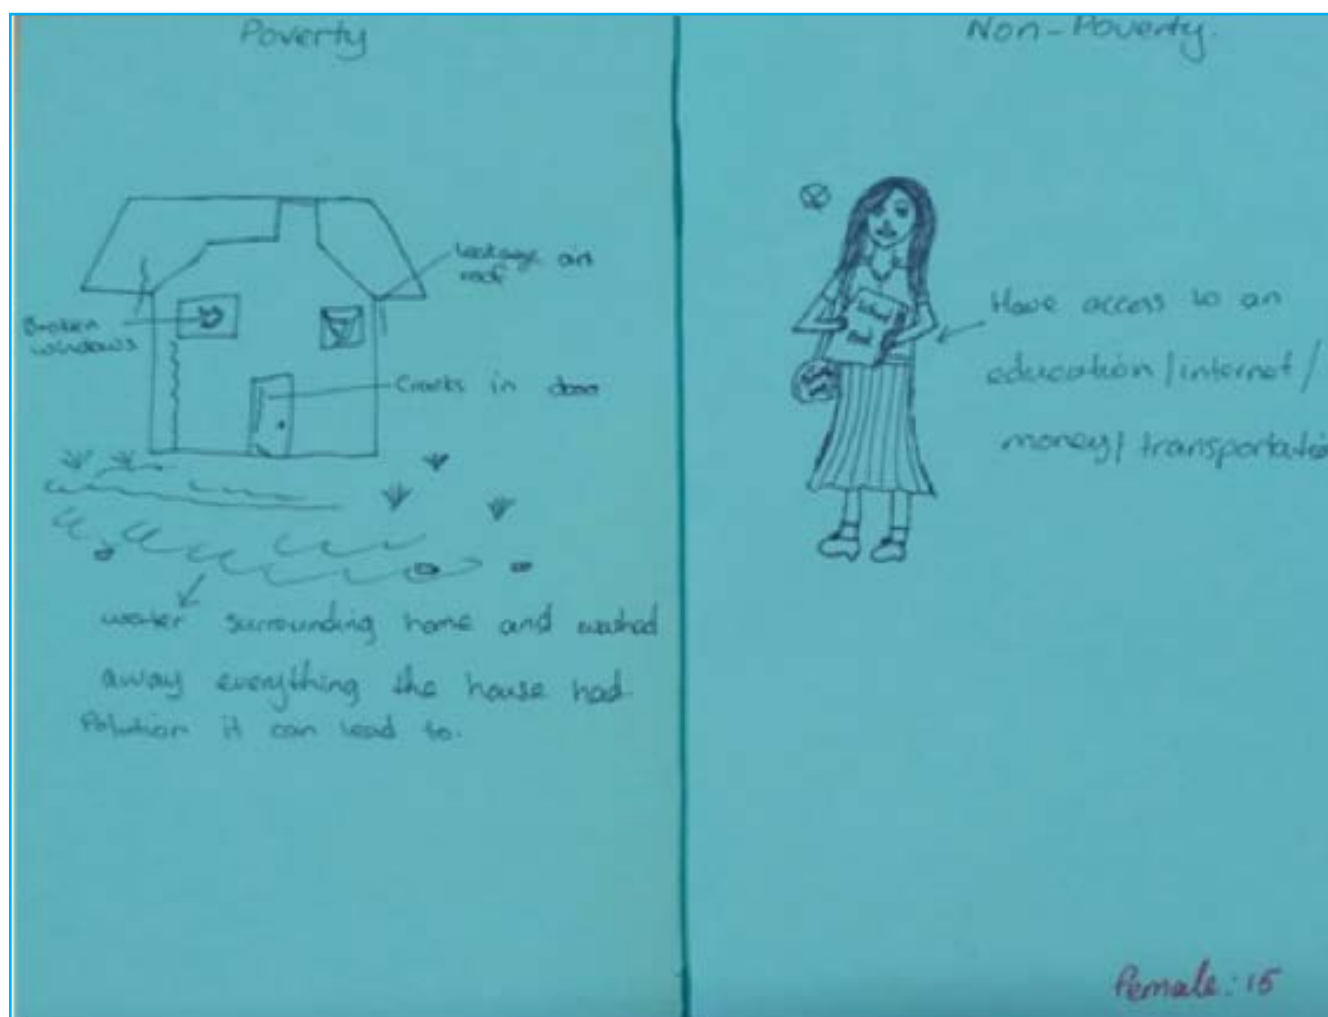 Poverty
Leakage on
roof
Broken
windows
Cracks in door
water surrounding home and washed
away everything the house had
Polution it can lead to.
Non-Poverty.
Have access to an
education/internet/
money/transportatio
Female: 15